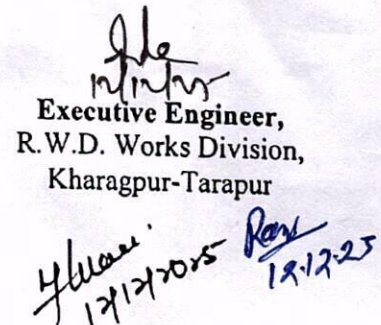 12/12/25
Executive Engineer,
R.W.D. Works Division,
Kharagpur-Tarapur
12/12/2025
12.12.25